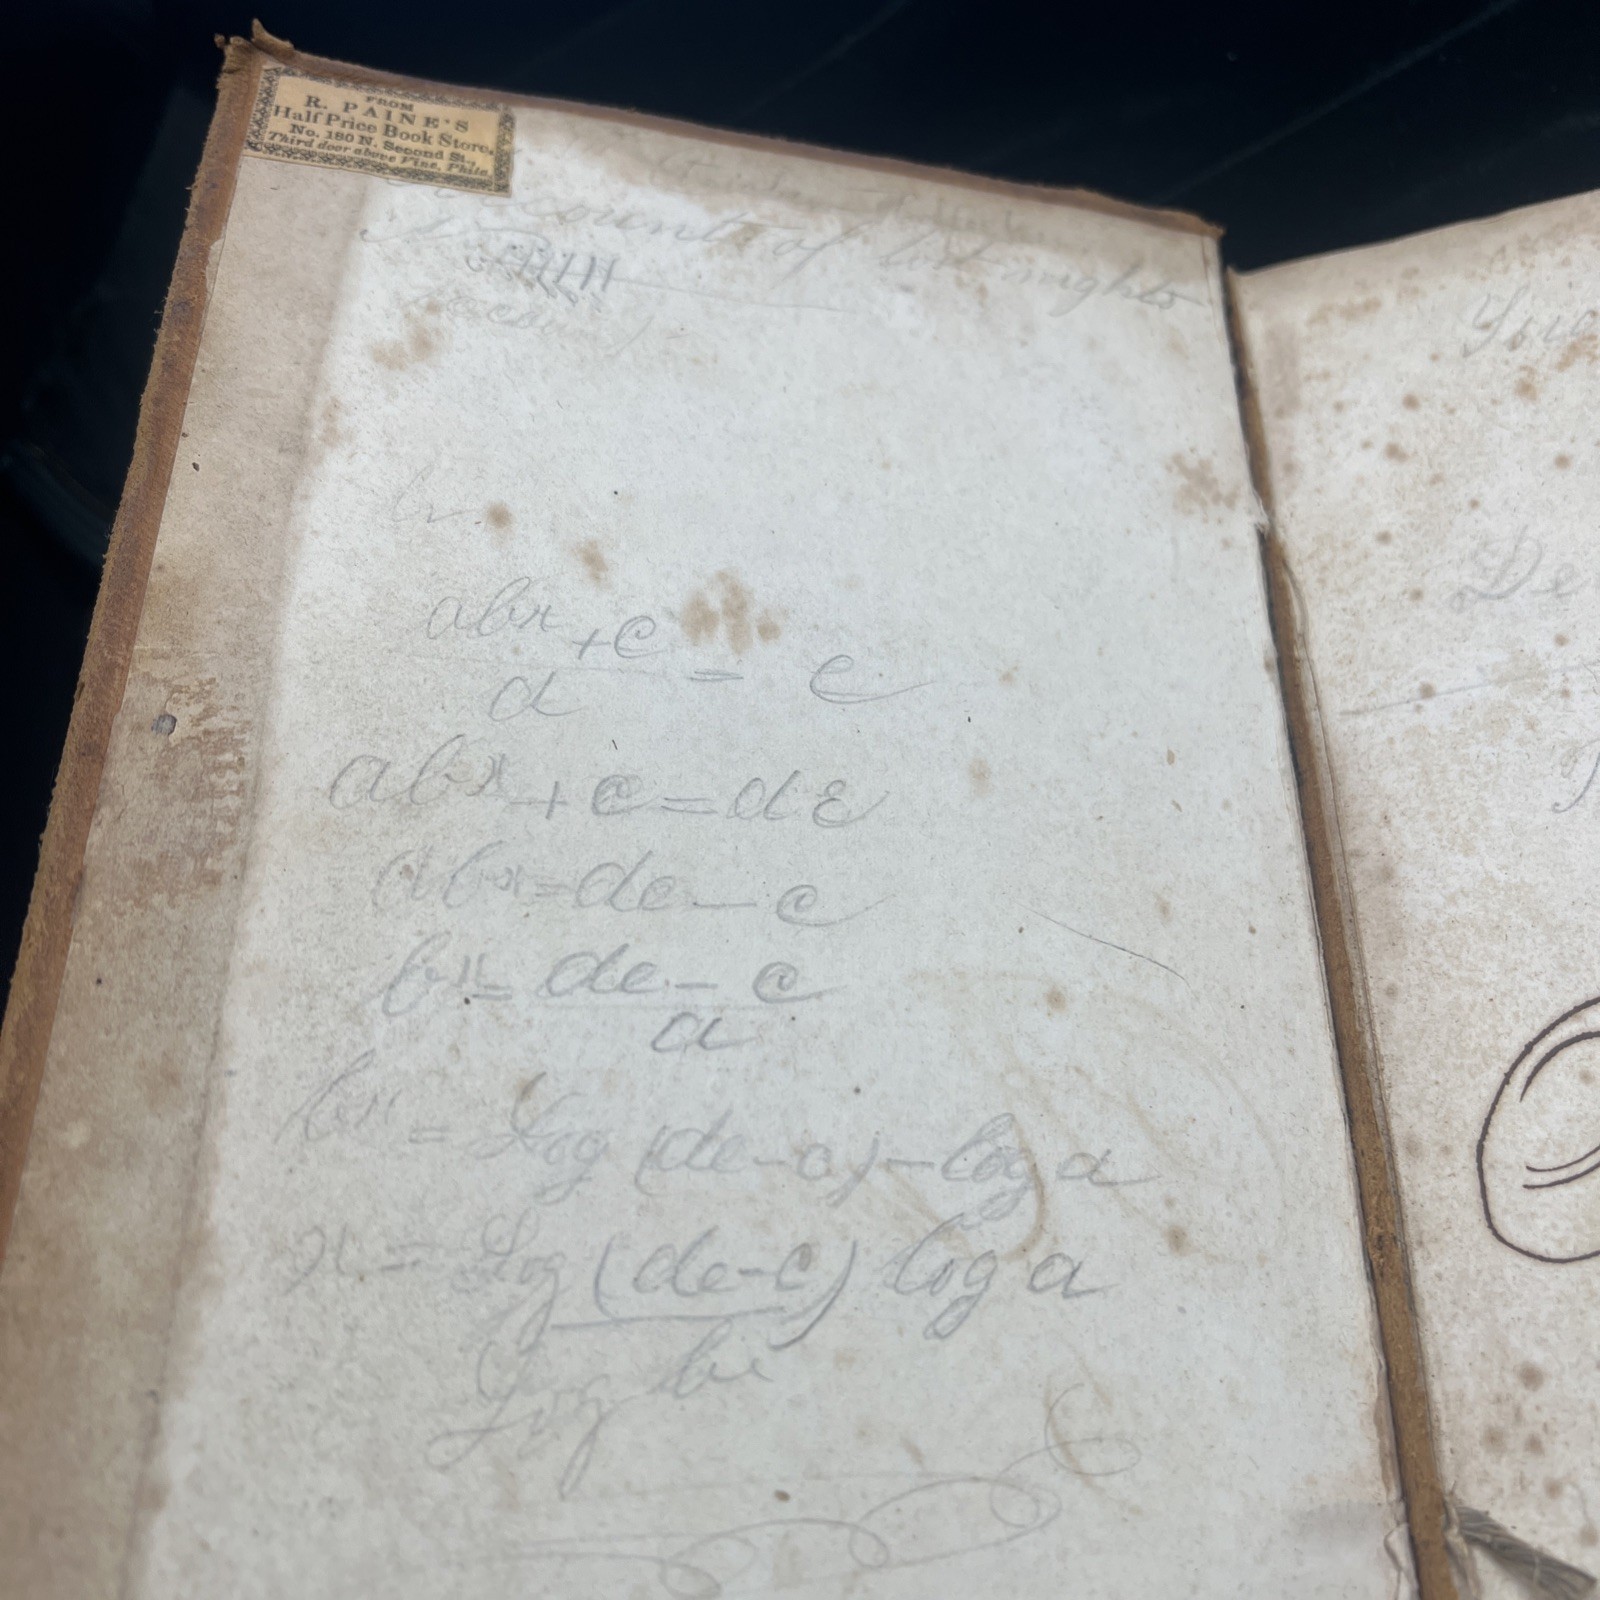 FROM
R. PAINE'S
Half Price Book Store,
No. 180 N. Second St.,
Third door above Vine, Phila.
count of lost nights
abˣ + c
d = e
abˣ + c = de
abˣ = de - c
bˣ = de - c
a
bˣ = Log (de - c) - log a
x = Log (de - c) log a
Log b
De